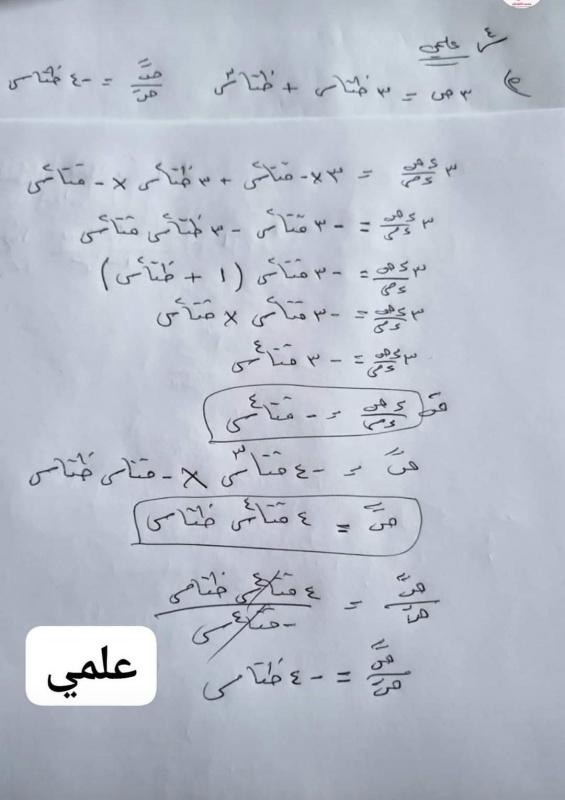 س٤ علمي
٣ص = ٣ ظتاس + ظتا٣س ص// / ص/ = -٤ ظتاس
٣ ءص/ءس = ٣ × - قتا٢س + ٣ ظتا٢س × - قتا٢س
٣ ءص/ءس = - ٣ قتا٢س - ٣ ظتا٢س قتا٢س
٣ ءص/ءس = - ٣ قتا٢س (١ + ظتا٢س)
٣ ءص/ءس = - ٣ قتا٢س × قتا٢س
٣ ءص/ءس = - ٣ قتا٤س
ءص/ءس = - قتا٤س
ص// = - ٤ قتا٣س × - قتاس ظتاس
ص// = ٤ قتا٤س ظتاس
ص// / ص/ = ٤ قتا٤س ظتاس / - قتا٤س
ص// / ص/ = - ٤ ظتاس
علمي